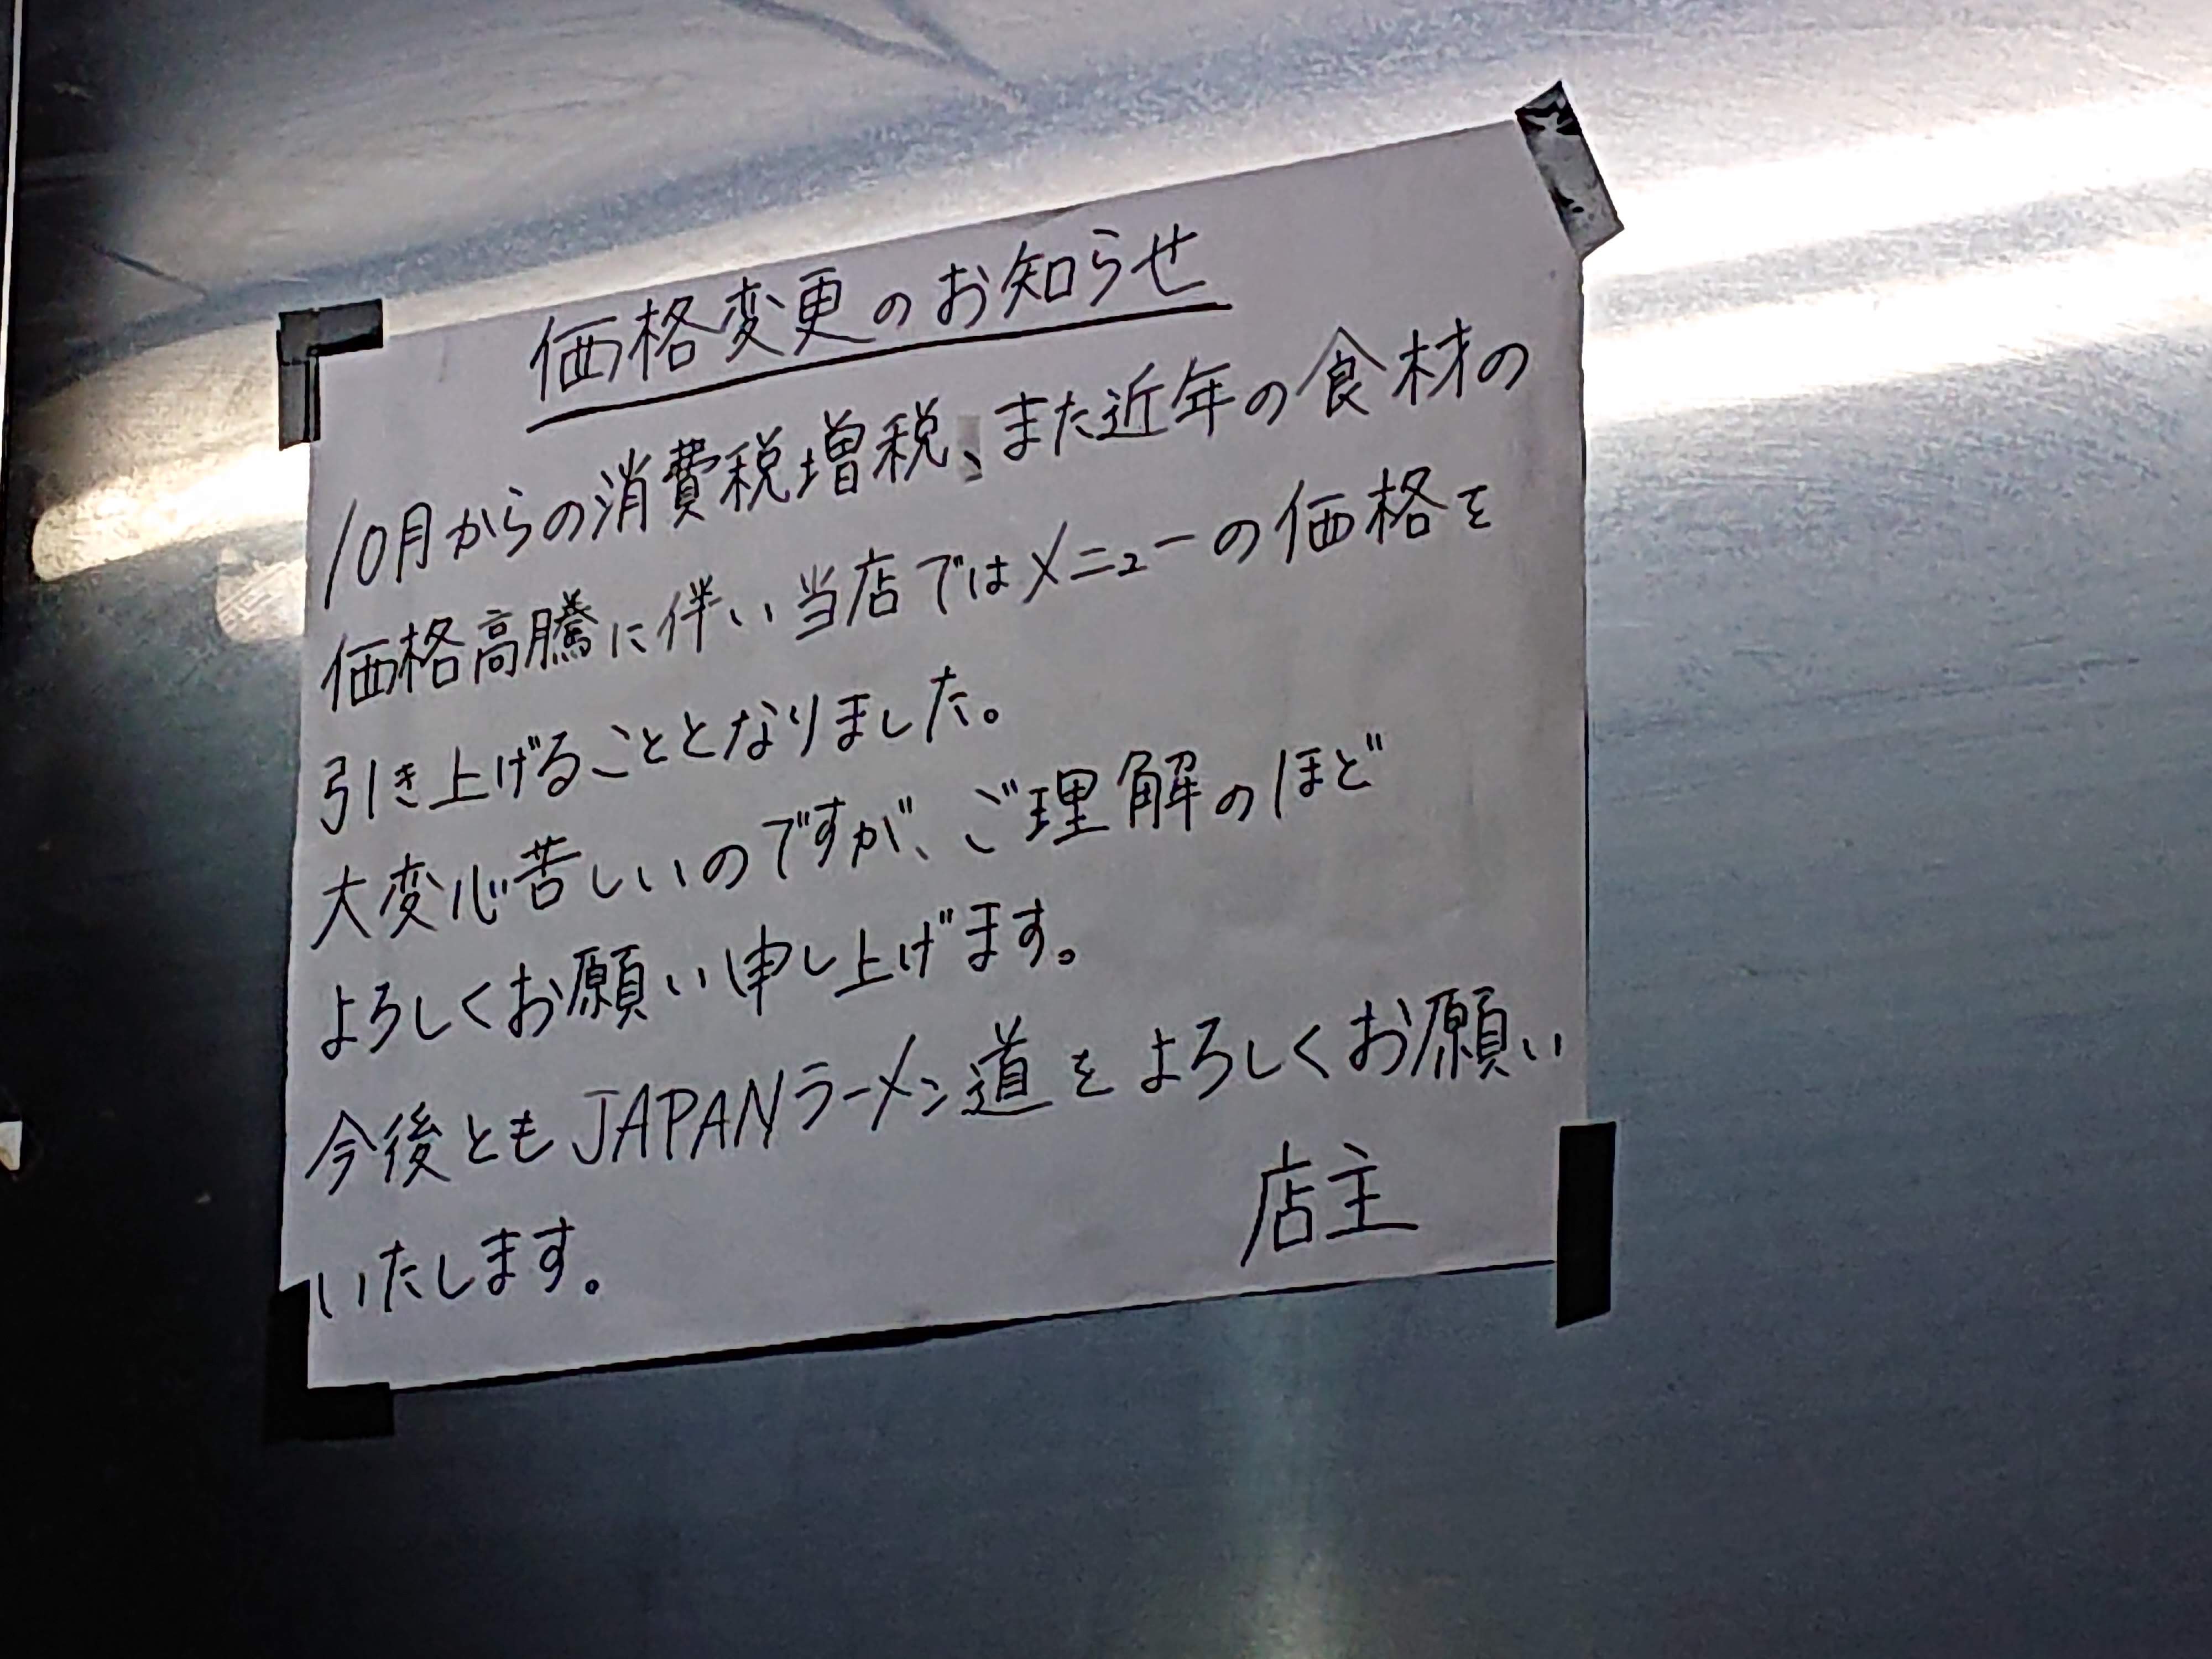 価格変更のお知らせ
10月からの消費税増税、また近年の食材の
価格高騰に伴い当店ではメニューの価格を
引き上げることとなりました。
大変心苦しいのですが、ご理解のほど
よろしくお願い申し上げます。
今後ともJAPANラーメン道をよろしくお願い
いたします。
店主